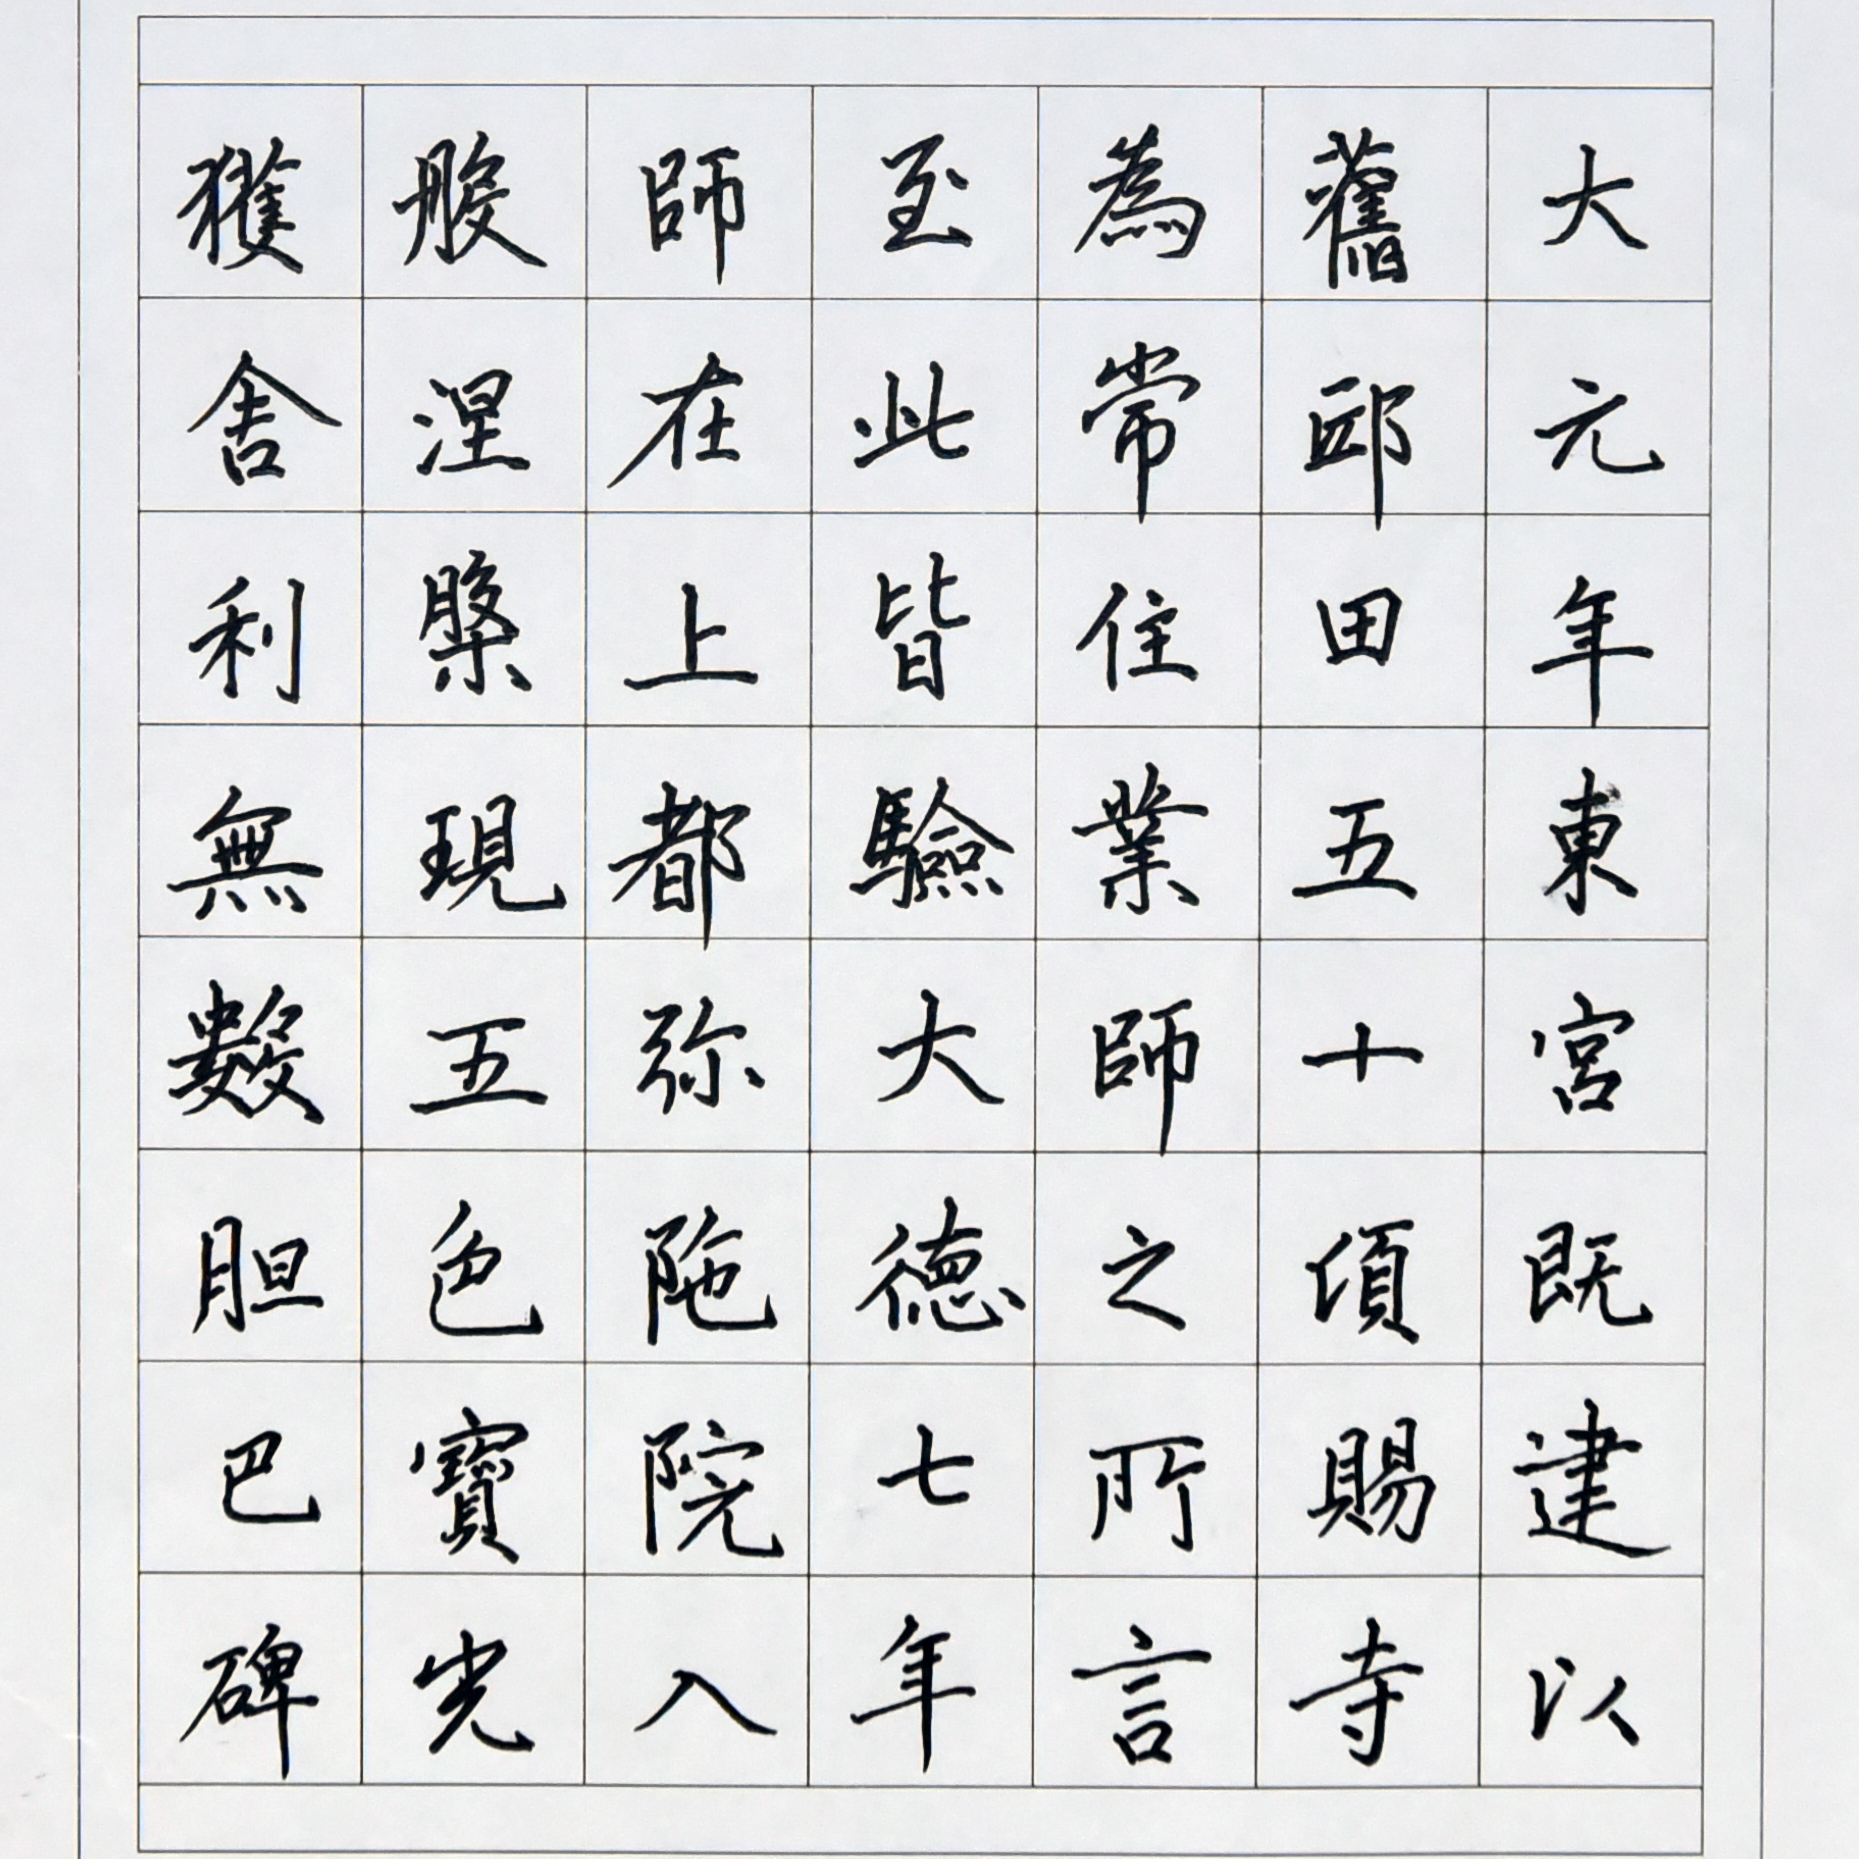 大元年東宮既建以
舊邸田五十頃賜寺
為常住業師之所言
至此皆驗大德七年
師在上都弥陁院入
般涅槃現五色寶光
獲舍利無數胆巴碑